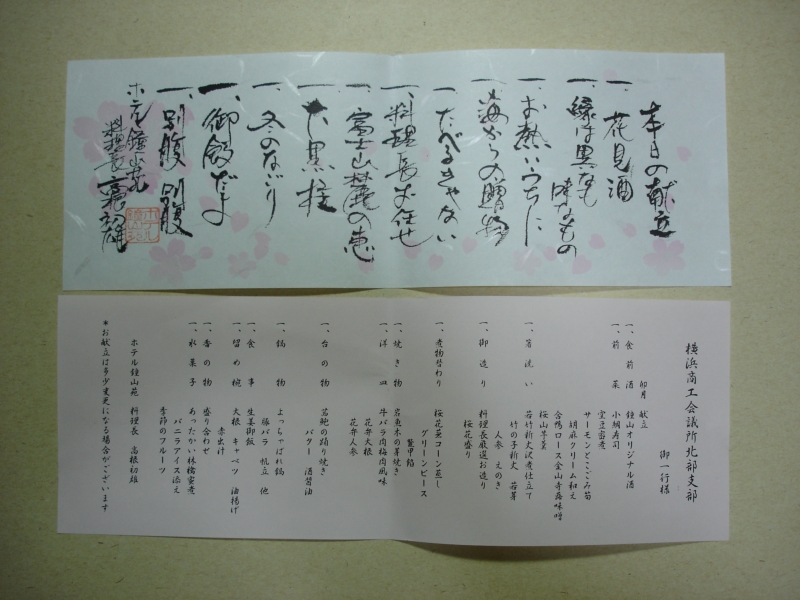 本日の献立
一、花見酒
一、縁は異なもの味なもの
一、お熱いうちに
一、海からの贈物
一、たべるきゃない
一、料理長お任せ
一、富士山麓の恵
一、大黒柱
一、冬のなごり
一、御飯だよ
一、別腹 別腹
ホテル鐘山苑
料理長 高根初雄
横浜商工会議所北部支部
御一行様
卯月 献立
一、食前酒 鐘山オリジナル酒
一、前 菜 小鯛寿司
サーモンとこごみ笥
空豆蜜煮
胡麻クリーム和え
合鴨ロース金山寺味噌
桜山葵
一、箸洗い 若竹新丈沢煮仕立て
竹の子新丈 若芽
人参 えのき
一、御造り 料理長厳選お造り
桜花盛り
一、煮物替わり 桜花蒸コーン蒸し
グリーンピース
鼈甲餡
一、焼き物 岩魚木の芽焼き
花弁大根
一、洋 皿 牛バラ肉梅肉風味
花弁人参
一、台の物 蒸鮑の踊り焼き
バター 酒醤油
一、鍋 物 よっちゃばれ鍋
豚バラ 帆立 他
一、食 事 生姜御飯
一、留め椀 大根 キャベツ 油揚げ
赤出汁
一、香の物 盛り合わせ
一、水菓子 あったかい林檎蜜煮
バニラアイス添え
季節のフルーツ
ホテル鐘山苑 料理長 高根初雄
*お献立は多少変更になる場合がございます